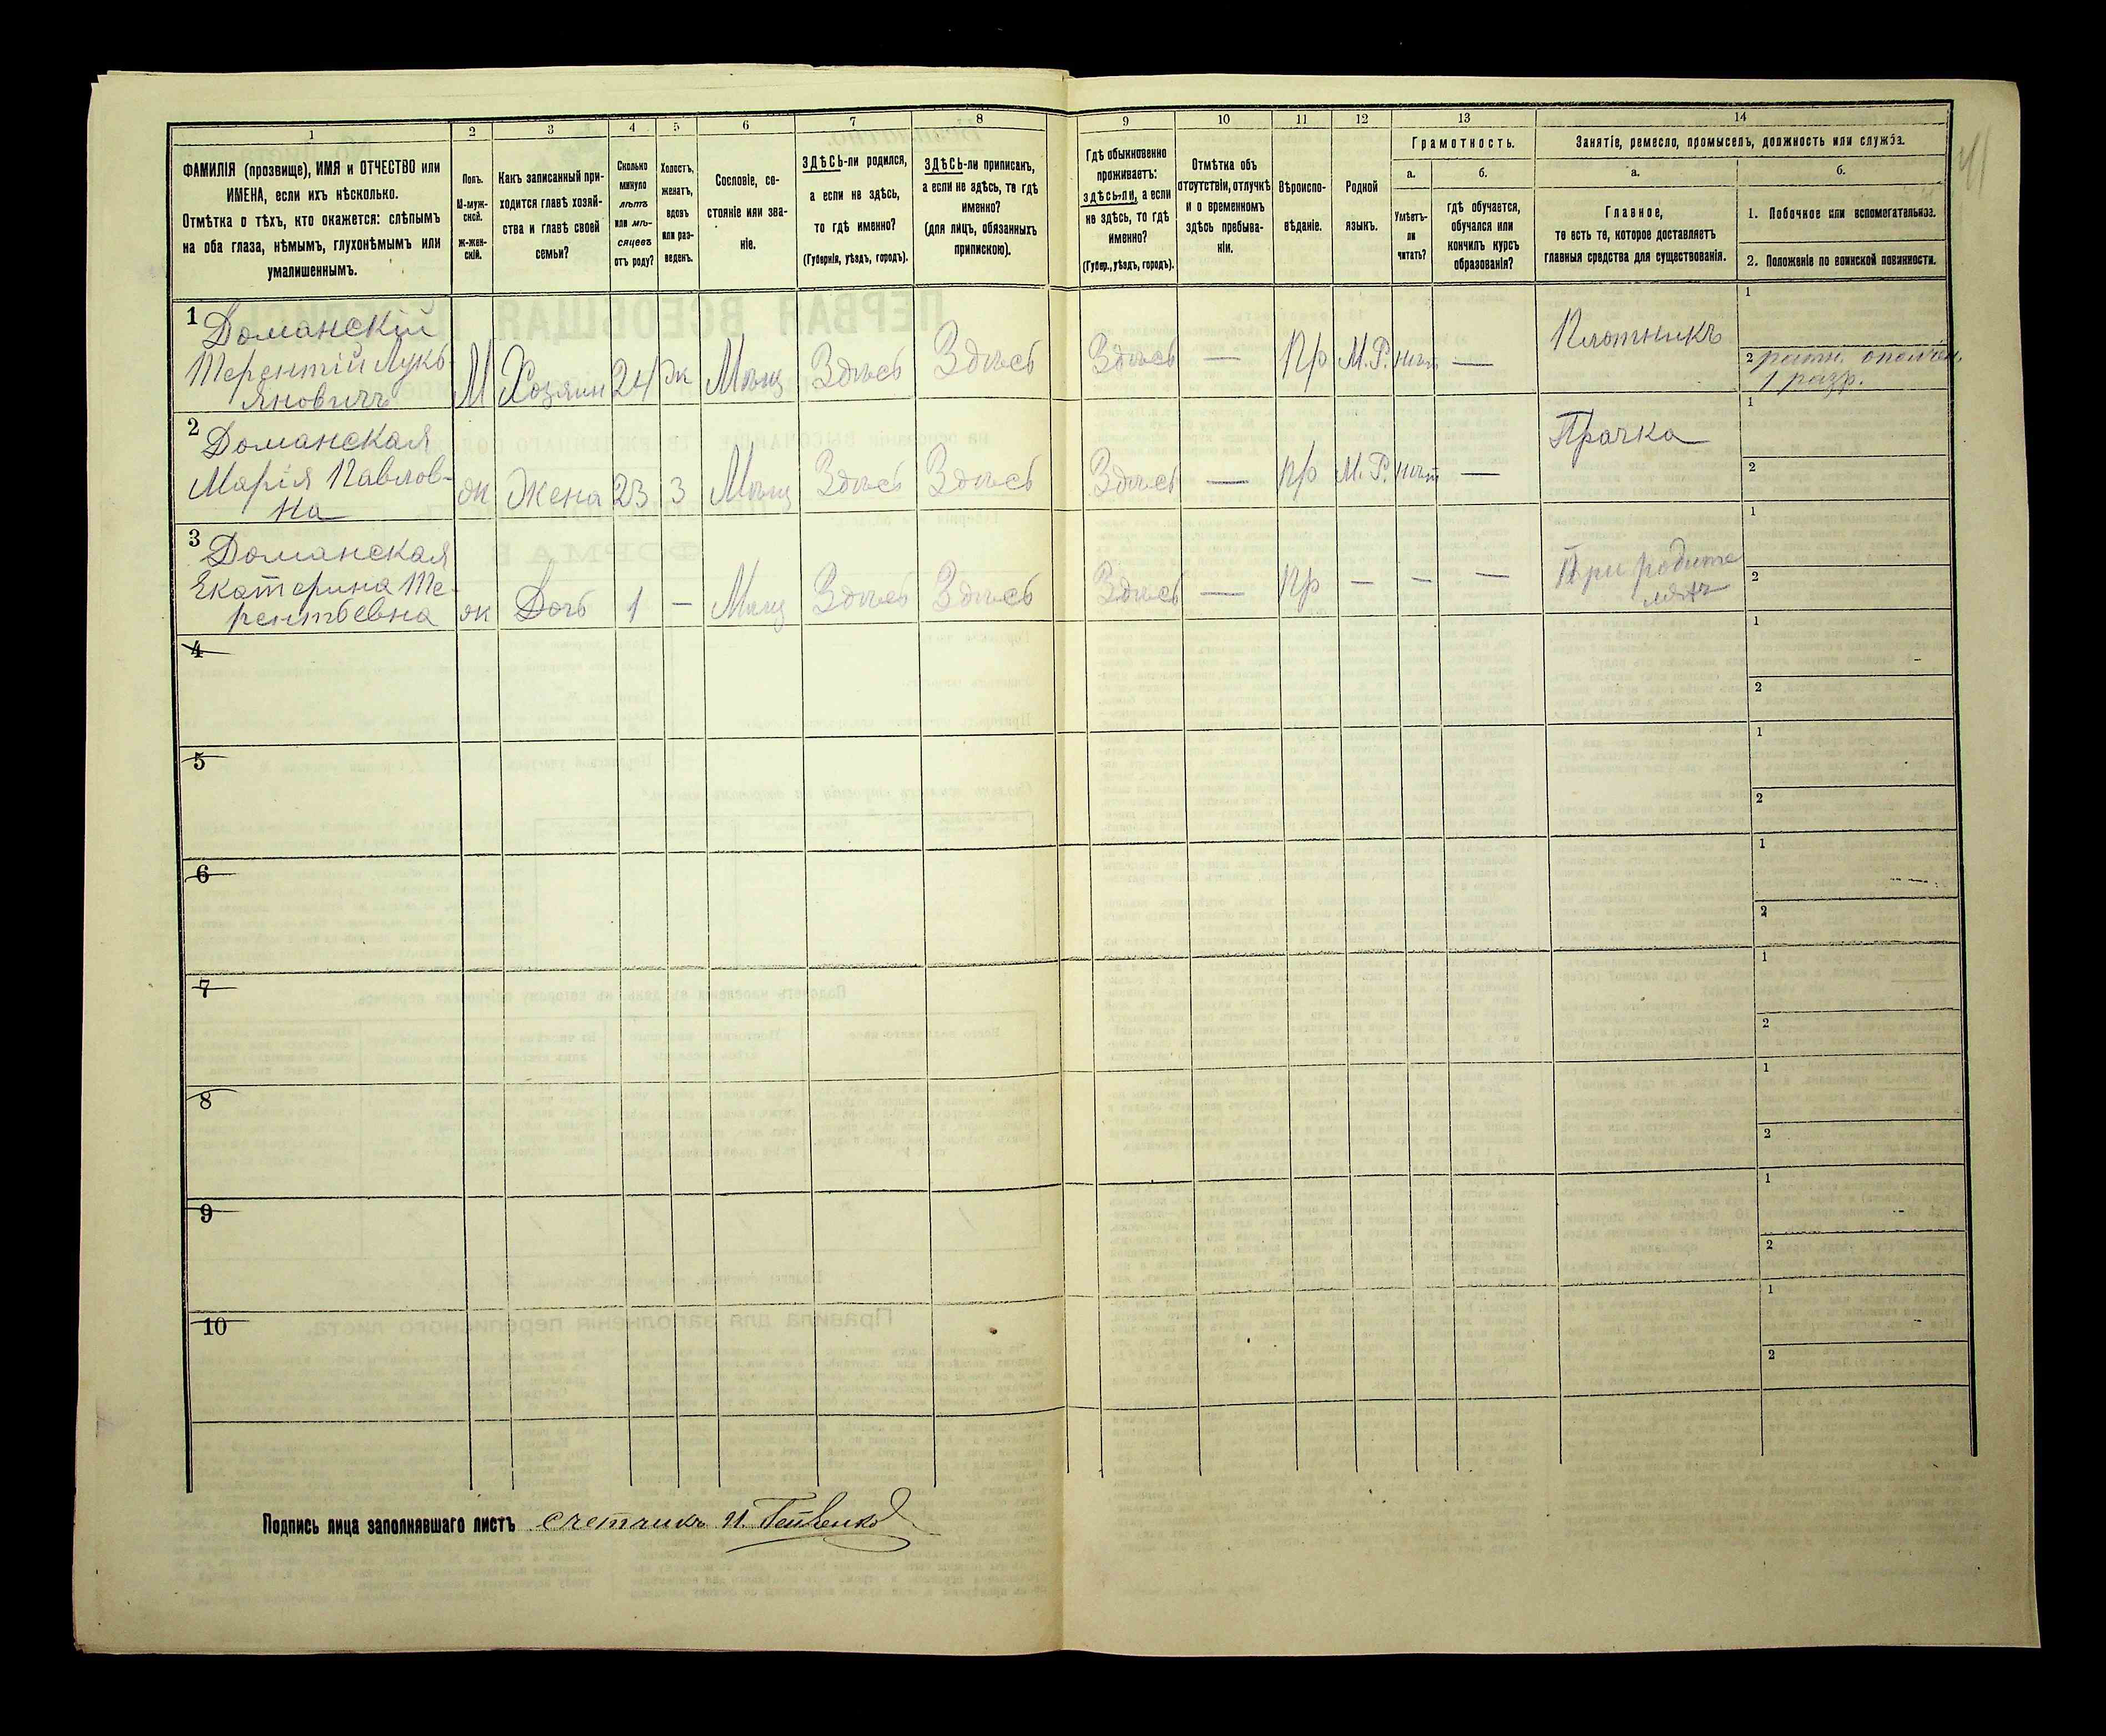 1
ФАМИЛІЯ (прозвище), ИМЯ и ОТЧЕСТВО или
ИМЕНА, если ихъ нѣсколько.
Отмѣтка о тѣхъ, кто окажется: слѣпымъ
на оба глаза, нѣмымъ, глухонѣмымъ или
умалишеннымъ.
2
Полъ.
М-муж-
ской.
Ж-жен-
скій.
3
Какъ записанный при-
ходится главѣ хозяй-
ства и главѣ своей
семьи?
4
Сколько
минуло
лѣтъ
или мѣ-
сяцевъ
отъ роду?
5
Холостъ,
женатъ,
вдовъ
или раз-
веденъ.
6
Сословіе, со-
стояніе или зва-
ніе.
7
ЗДѢСЬ-ли родился,
а если не здѣсь,
то гдѣ именно?
(Губернія, уѣздъ, городъ).
8
ЗДѢСЬ-ли приписанъ,
а если не здѣсь, то гдѣ
именно?
(для лицъ, обязанныхъ
припискою).
9
Гдѣ обыкновенно
проживаетъ:
здѣсь-ли, а если
не здѣсь, то гдѣ
именно?
(Губер., уѣздъ, городъ).
10
Отмѣтка объ
отсутствіи, отлучкѣ
и о временномъ
здѣсь пребыва-
ніи.
11
Вѣроиспо-
вѣданіе.
12
Родной
языкъ.
13
Грамотность.
а.
Умѣетъ-
ли
читать?
б.
гдѣ обучается,
обучался или
кончилъ курсъ
образованія?
14
Занятіе, ремесло, промыселъ, должность или служба.
а.
Главное,
то есть то, которое доставляетъ
главныя средства для существованія.
б.
1. Побочное или вспомогательное.
2. Положеніе по воинской повинности.
1 Доманскій
Терентій Лукь-
яновичъ
М Хозяин 24 Ж Мѣщ Здѣсь Здѣсь Здѣсь — Пр М.Р. нѣт —
Плотникъ
1
2 ратн. ополчен.
1 разр.
2 Доманская
Марія Павлов-
на
ж Жена 23 З Мѣщ Здѣсь Здѣсь Здѣсь — пр М.Р. нѣт —
Прачка
1
2
3 Доманская
Екатерина Те-
рентьевна
ж Дочь 1 — Мѣщ Здѣсь Здѣсь Здѣсь — Пр — — —
При родите
ляхъ
1
2
4
1
2
5
1
2
6
1
2
7
1
2
8
1
2
9
1
2
10
1
2
Подпись лица заполнявшаго листъ счетчикъ И.